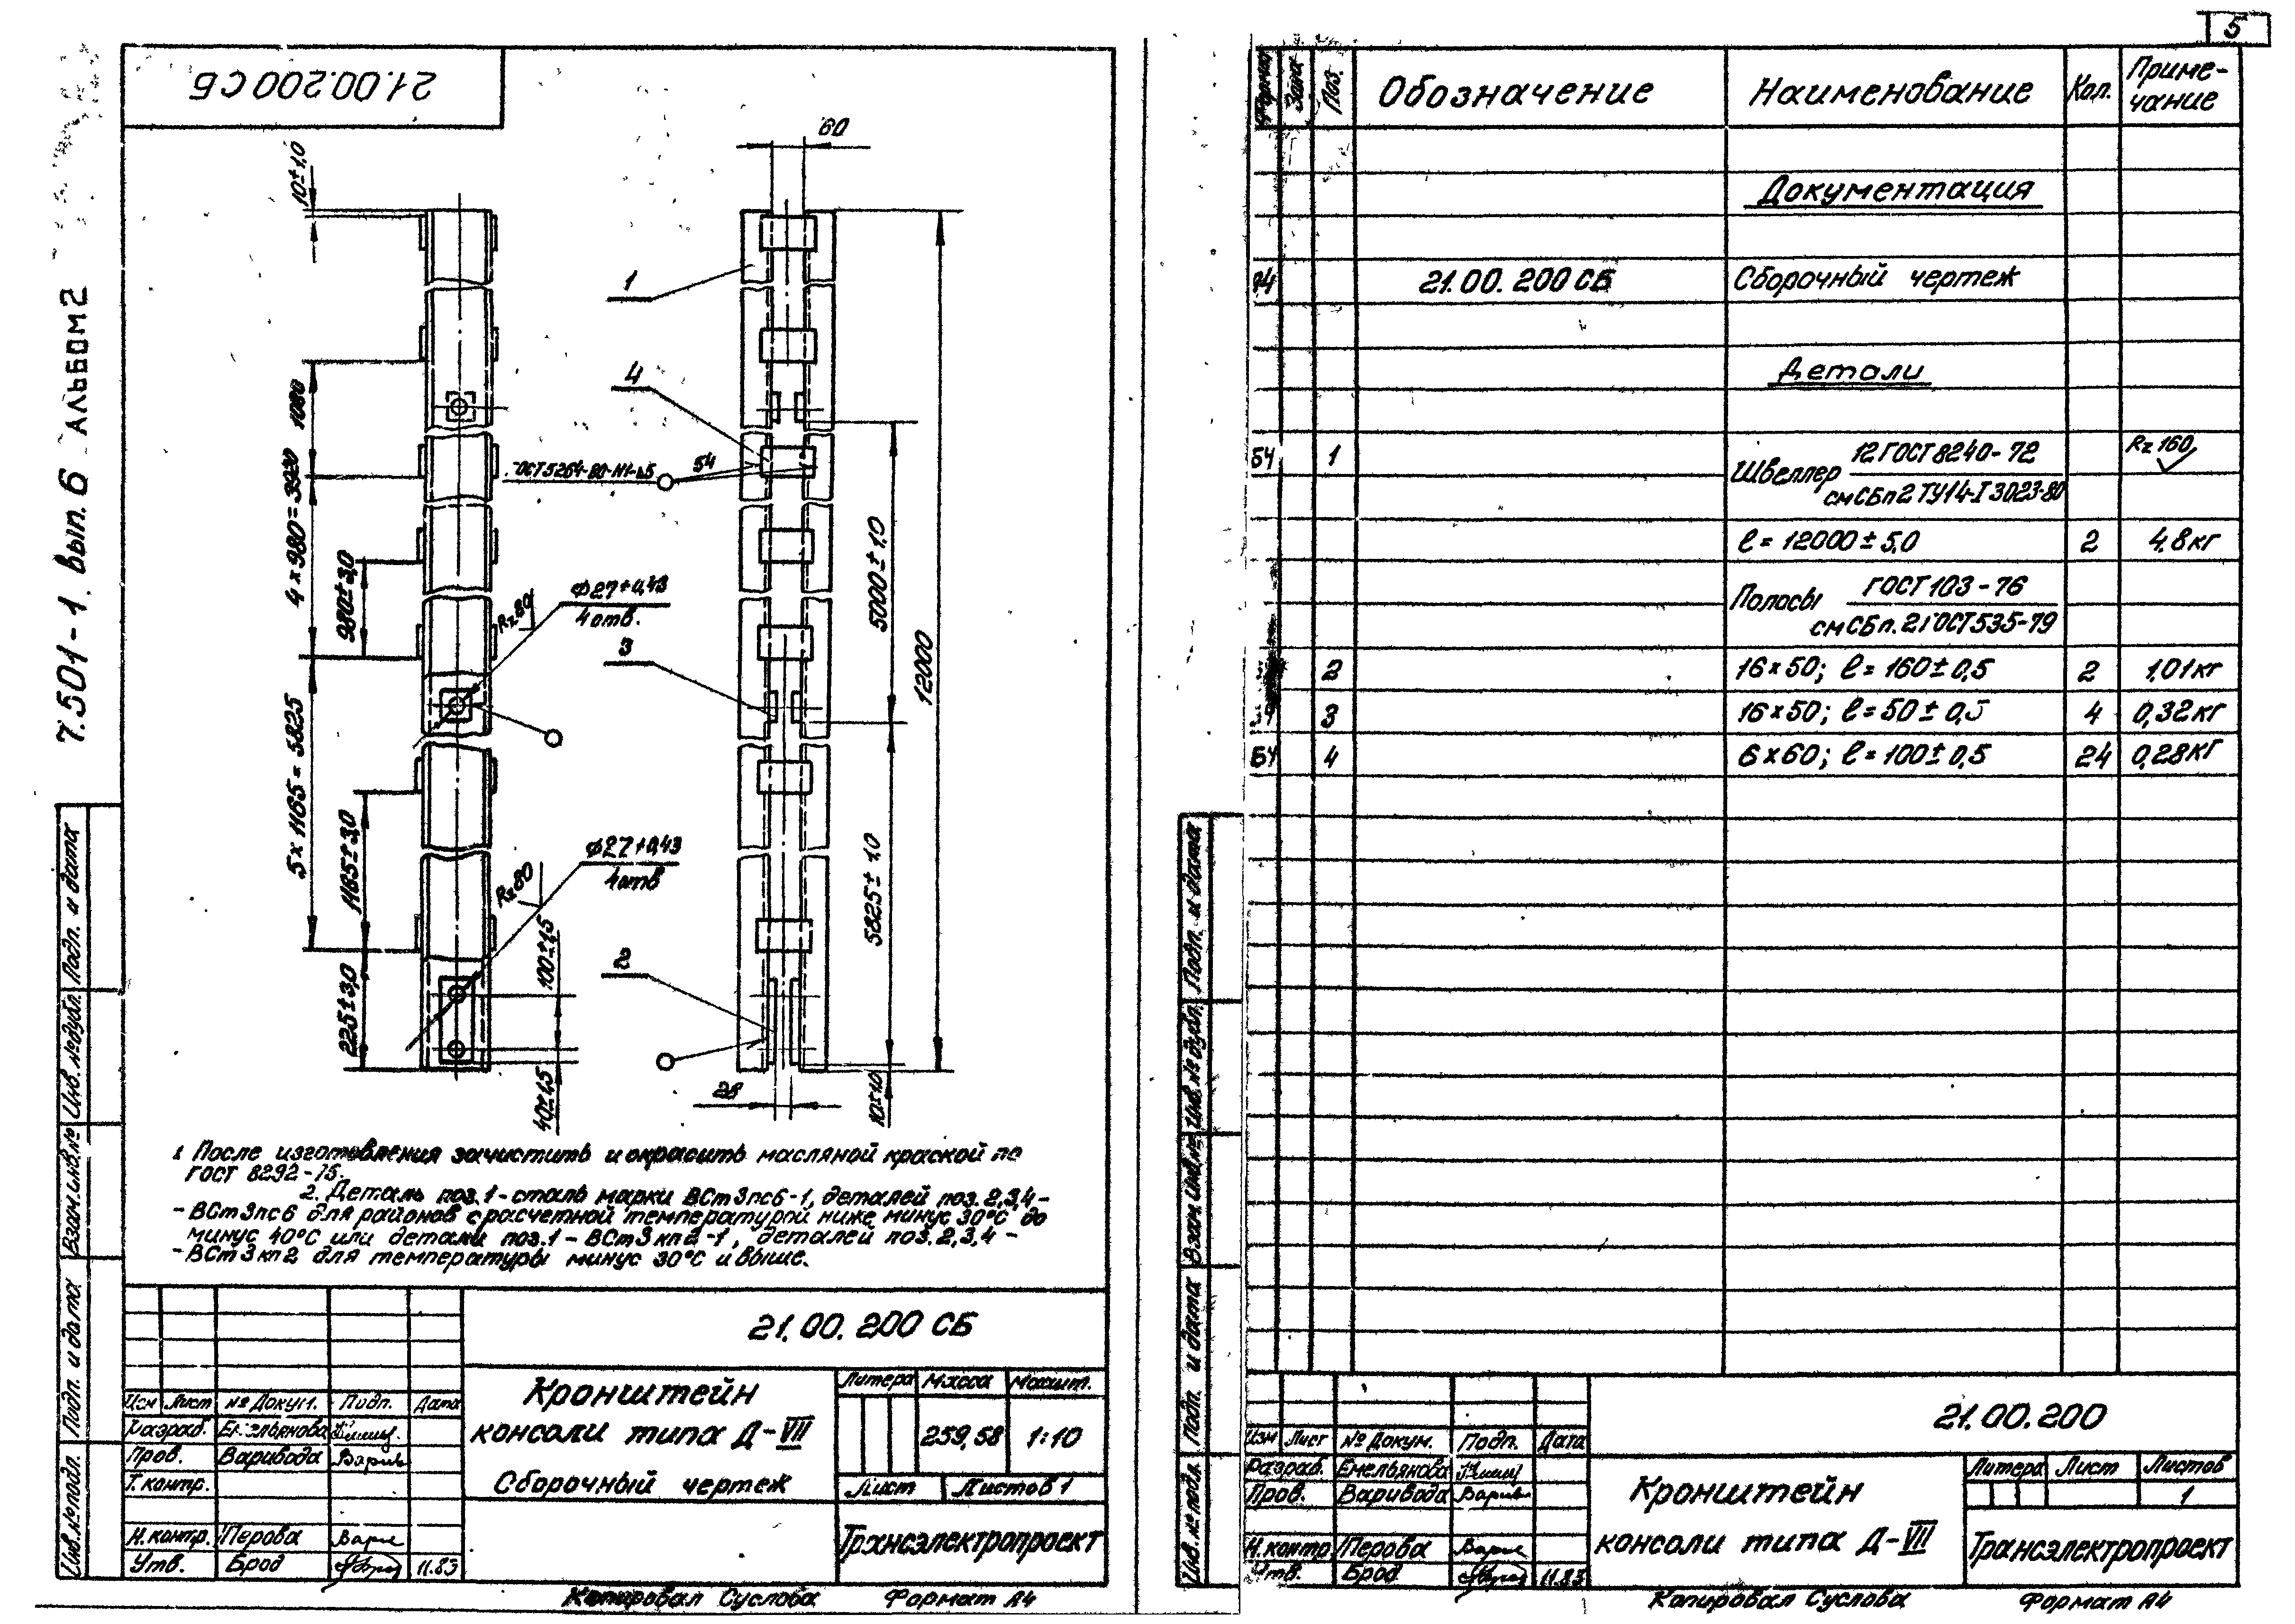 5
7.501-1. Вып. 6 АЛЬБОМ 2
21.00.200 СБ
60
10±1,0
1
4
1080
4 × 980 = 3920
980±3,0
54
Rz 80
Ф27+0,43
4 отв.
3
5000±1,0
12000
5 × 1165 = 5825
1165±3,0
Rz 80
Ф27+0,43
4 отв
100±1,5
2
5825±1,0
225±3,0
28
10±1,0
1. После изготовления зачистить и окрасить масляной краской по
ГОСТ 8292-75.
2. Деталь поз. 1 - сталь марки ВСт3пс6-1, деталей поз. 2,3,4 -
- ВСт3пс6 для районов с расчетной температурой ниже минус 30°С до
минус 40°С или детали поз. 1 - ВСт3кп2-1, деталей поз. 2,3,4 -
- ВСт3кп2 для температуры минус 30°С и выше.
Инв. № подл. Подп. и дата Взам. инв. № Инв. № дубл. Подп. и дата
21.00.200 СБ
Изм Лист № Докум. Подп. Дата
Разраб. Емельянова
Пров. Варивода
Т. контр.
Н. контр. Перова
Утв. Брод 11.83
Кронштейн
консоли типа Д-VII
Сборочный чертеж
Литера Масса Масшт.
259,58 1:10
Лист Листов 1
Трансэлектропроект
Копировал Суслова Формат А4
Формат Зона Поз. Обозначение Наименование Кол. Приме-
чание
Документация
А4 21.00.200 СБ Сборочный чертеж
Детали
БЧ 1 Швеллер 12 ГОСТ 8240-72 Rz 160
см СБ п 2 ТУ14-I 3023-80
ℓ = 12000±5,0 2 4,8 кг
Полосы ГОСТ 103-76
см СБ п. 2 ГОСТ 535-79
2 16×50; ℓ = 160±0,5 2 1,01 кг
БЧ 3 16×50; ℓ = 50±0,5 4 0,32 кг
БЧ 4 6×60; ℓ = 100±0,5 24 0,28 кг
Инв. № подл. Подп. и дата Взам. инв. № Инв. № дубл. Подп. и дата
21.00.200
Изм Лист № Докум. Подп. Дата
Разраб. Емельянова
Пров. Варивода
Н. контр Перова
Утв. Брод 11.83
Кронштейн
консоли типа Д-VII
Литера Лист Листов
1
Трансэлектропроект
Копировал Суслова Формат А4